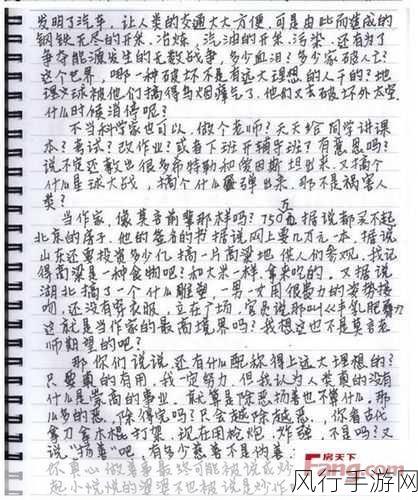 发明了汽车，让人类的交通大大方便，可是由此而造成的
钢铁无尽的开采、冶炼，汽油的开采、污染，还有为了
争夺能源发生的无数战争，多少血泪？多少家破人亡？
这个世界，哪一种破坏不是有远大理想的人干的？地
球又被他们搞得乌烟瘴气了，他们又去破坏外太空，
什么时候消停呢？
不当科学家也可以，做个老师？天天给同学讲课
本？考试？改作业？或者下班开辅导班了有意思吗？
说不定还教出很多希特勒和爱因斯坦出来，又搞个
什么星球大战，搞个什么弹出来，那不是祸害人
类？
当作家，像莫言前辈那样吗？750万据说都买不起
北京的房子，他的签名的书据说网上要几万元一本，据说
山东还要投资多少亿搞一片高粱地供人们参观，我记
得高粱是一种食物吧！和大米一样，拿来吃的。又据说
湖北搞了一个什么雕塑，一男一女用很费力的姿势接
吻，还没有穿衣服，立在广场，官员说那叫《丰乳肥臀》
这就是当作家的最高境界吗？我想这也不是莫言老
师期望的吧？
那你们说说，还有什么配称得上远大理想的？
只要真的有用，我一定努力，但我认为人类真的没有
什么是崇高的事业。就算是除恶扬善也不算什么，那
么多的恶，除得完吗？只会越除越恶，你看古代
拿刀拿木棍打架，现在用枪炮，炸弹，不是吗？又
说"扬善"吧，有多少慈善不是伪善？
你真心做善事最终可能被说成炒
起小悦悦的婆婆不也被说是炒作
房天下
Fang.com
风行手游网